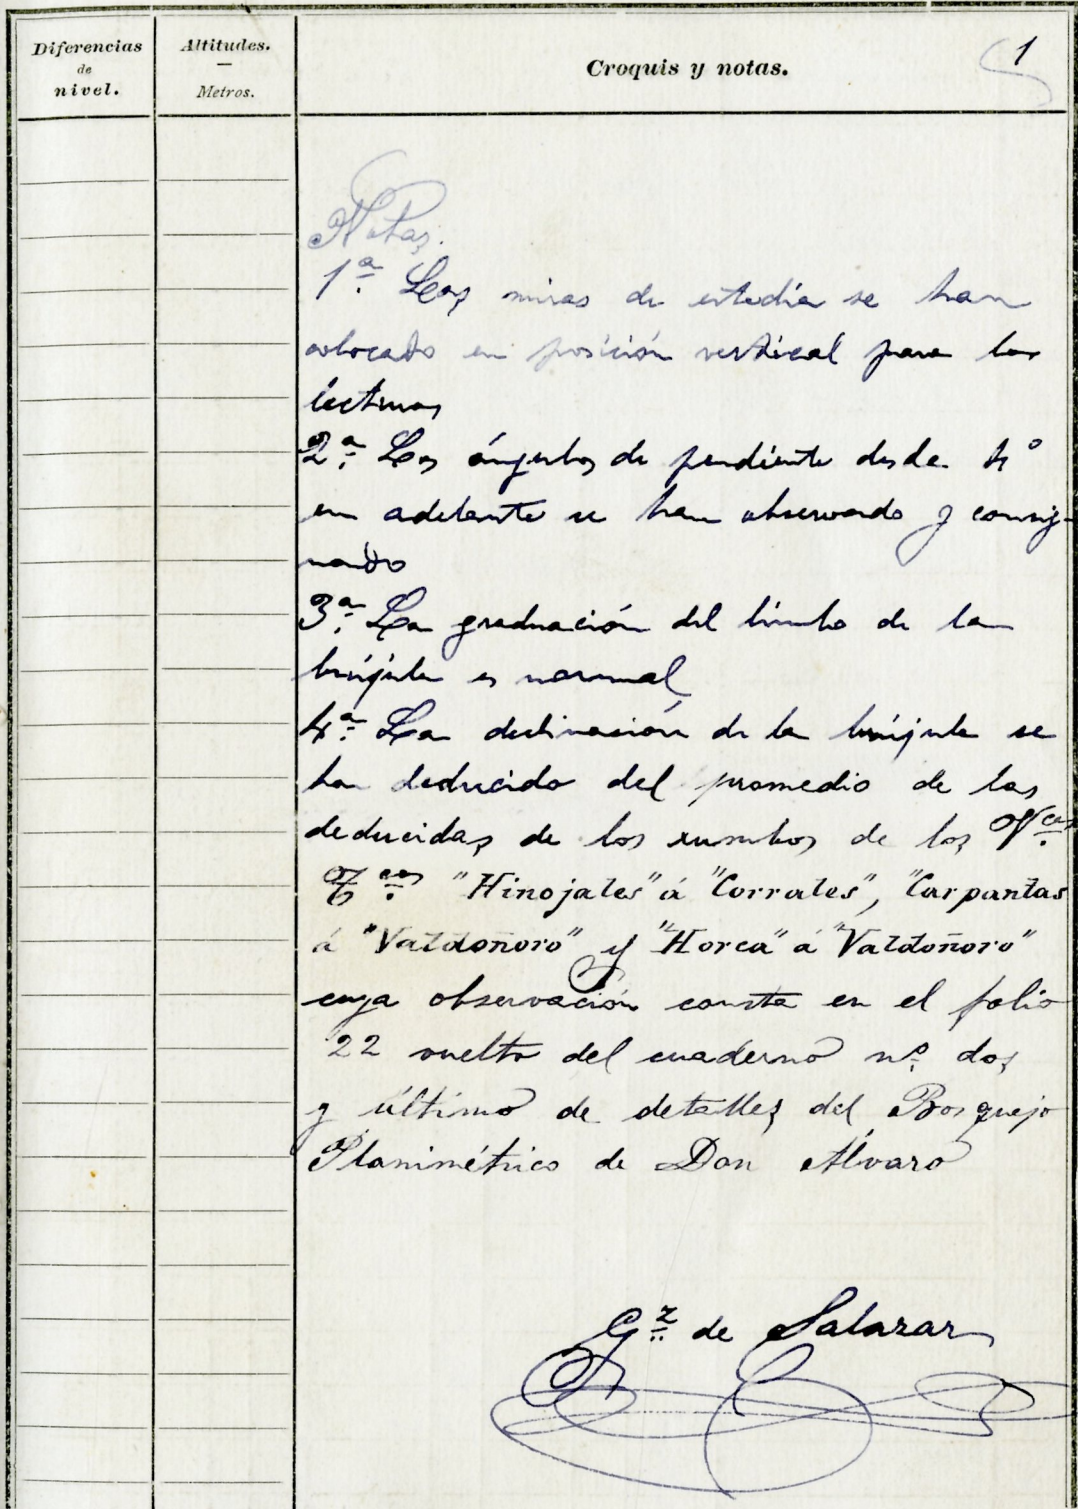 Diferencias
de
nivel.
Altitudes.
Metros.
Croquis y notas.
1
Notas.
1ª Las miras de estadía se han
colocado en posición vertical para las
lecturas
2ª Los ángulos de pendiente desde 4°
en adelante se han observado y consig-
nado
3ª La graduación del limbo de la
brújula es normal
4ª La declinación de la brújula se
ha deducido del promedio de las
deducidas de los rumbos de los Vces
Tcos "Hinojales" á "Corrales", "Carpantas
á "Valdoñoro" y "Horca" á "Valdoñoro"
cuya observación consta en el folio
22 vuelto del cuaderno nº dos
y último de detalles del Bosquejo
Planimétrico de Don Álvaro
Gz de Salazar